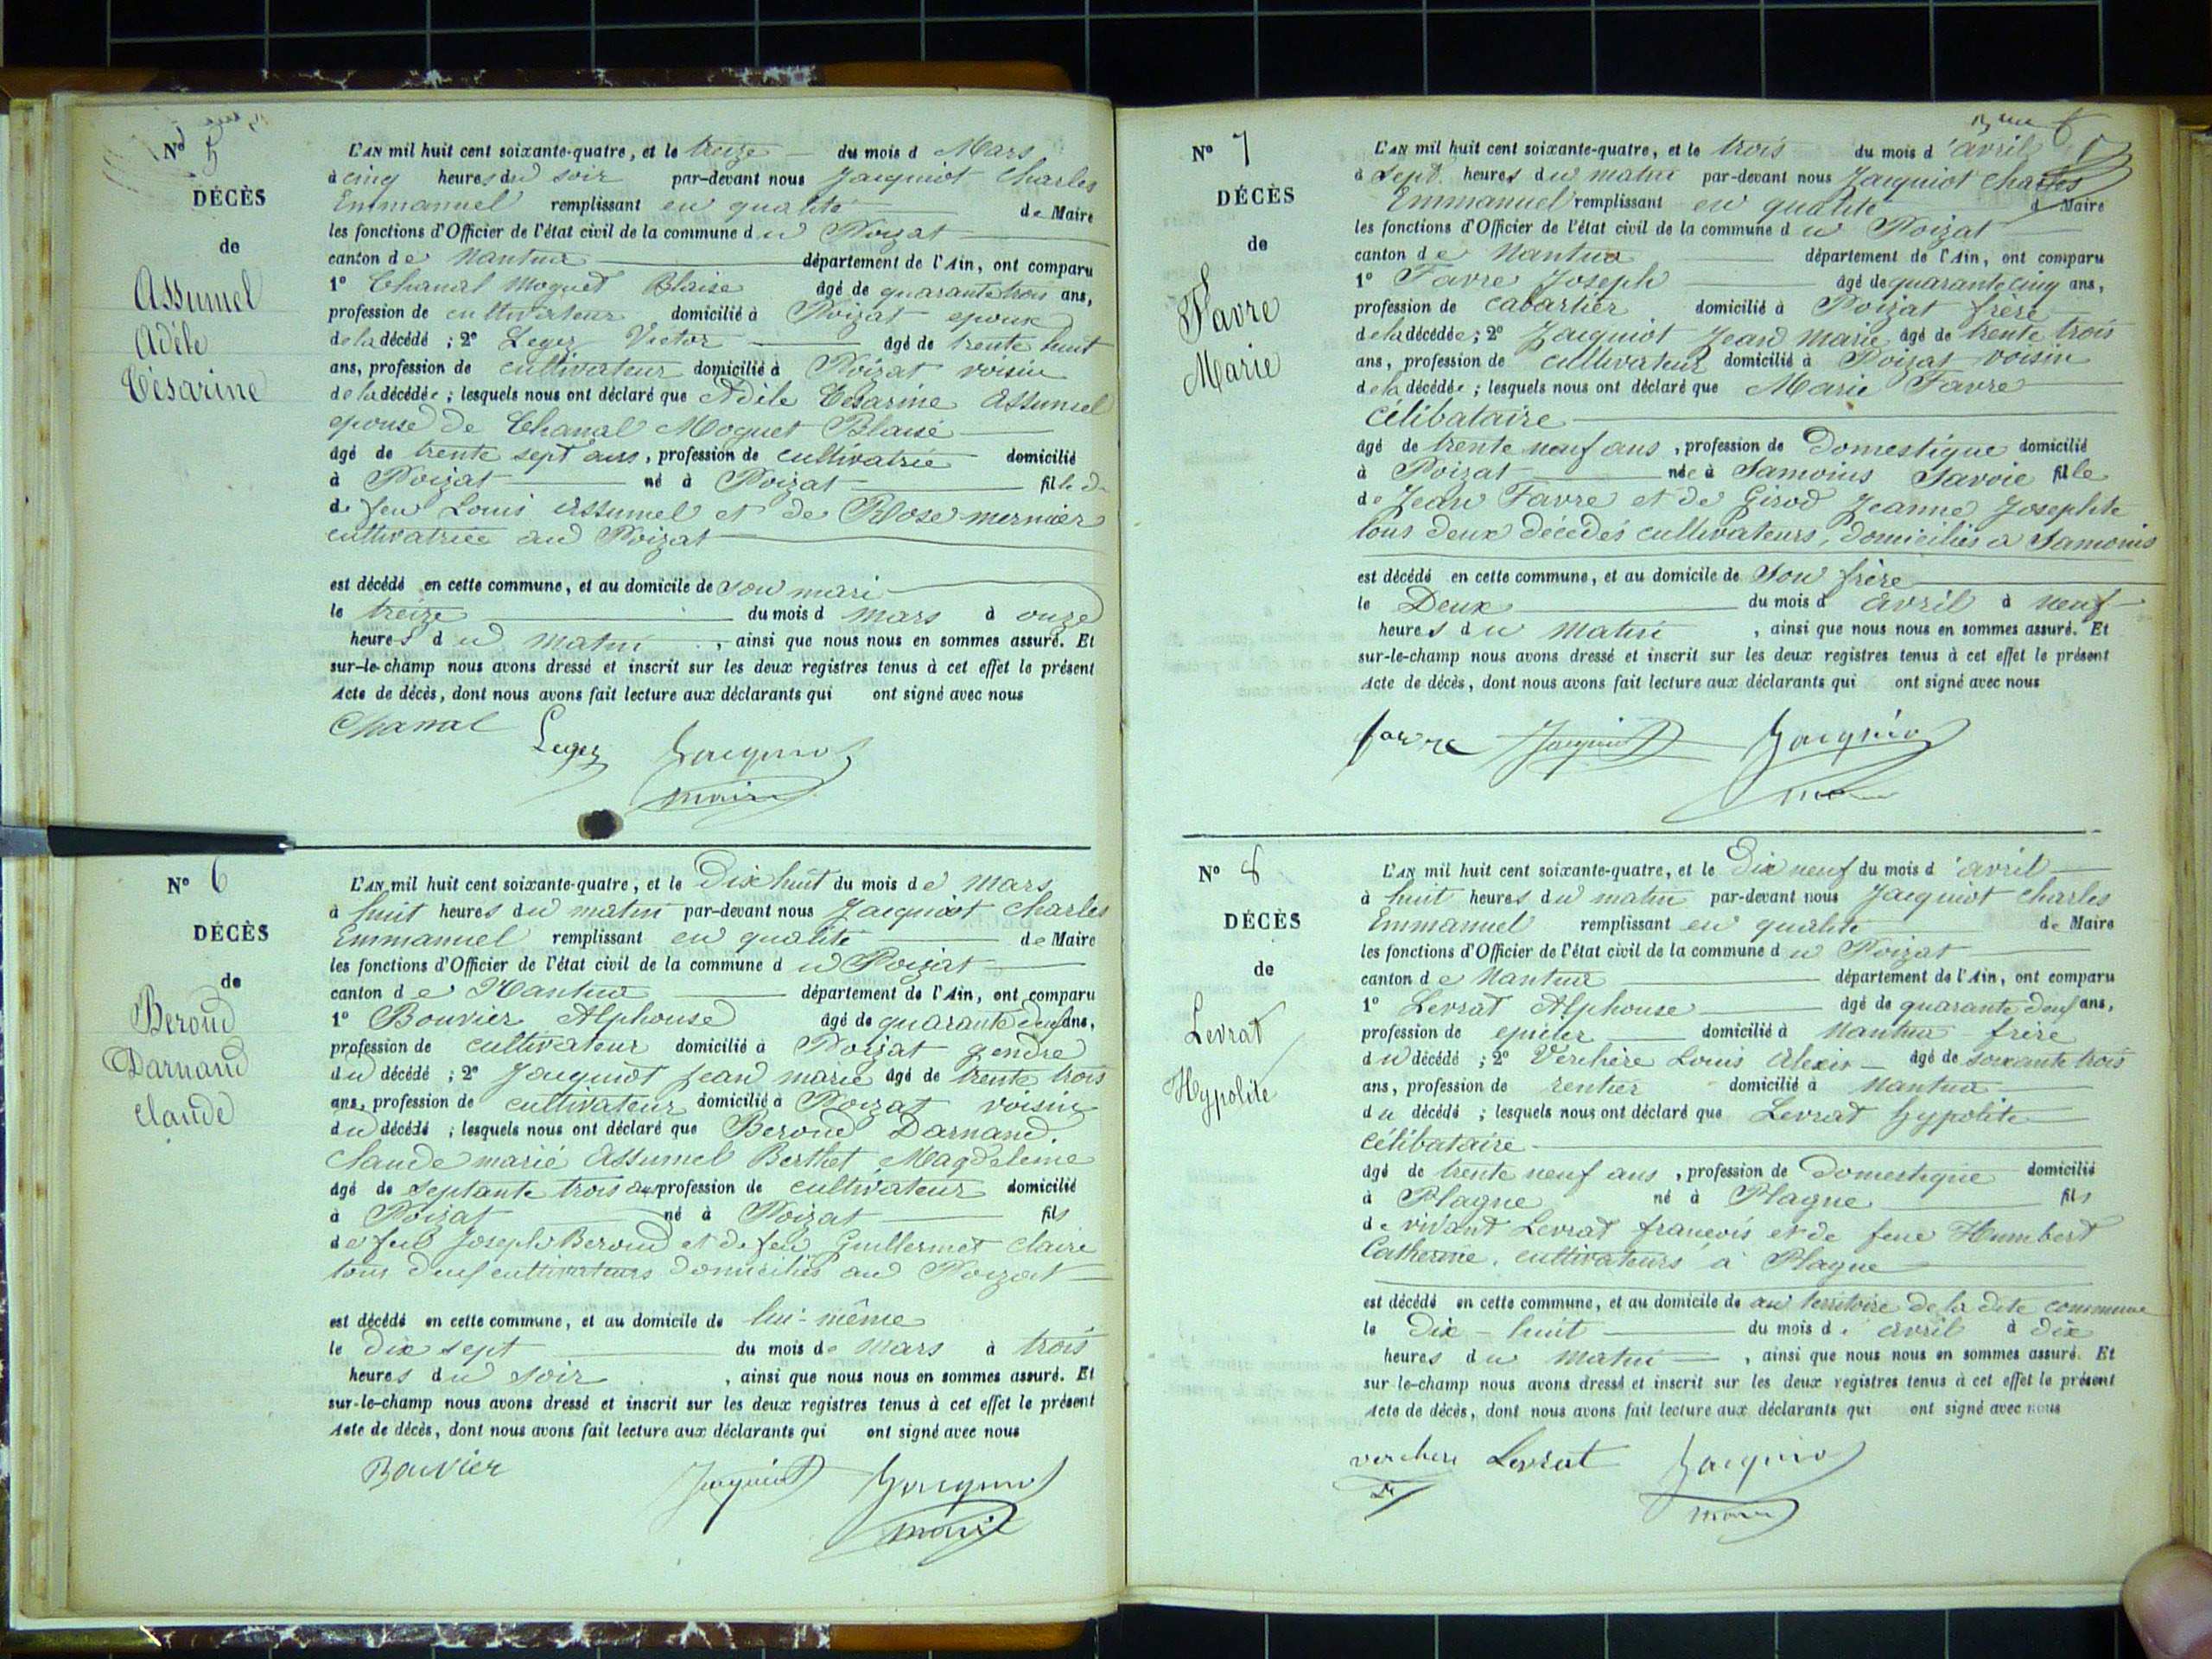 N° 5
DÉCÈS
de
Assumel
Adèle
Césarine
L'AN mil huit cent soixante-quatre, et le treize du mois d Mars
à cinq heures du soir par-devant nous Jacquiot Charles
Emmanuel remplissant en qualité de Maire
les fonctions d'Officier de l'état civil de la commune du Poizat
canton de Nantua département de l'Ain, ont comparu
1° Chanal Moquet Blaise âgé de quarante trois ans,
profession de cultivateur domicilié à Poizat epoux
de la décédé ; 2° Leger Victor âgé de trente huit
ans, profession de cultivateur domicilié à Poizat voisin
de la décédée ; lesquels nous ont déclaré que Adèle Césarine Assumel
epouse de Chanal Moquet Blaise
âgé de trente sept ans, profession de cultivatrice domicilié
à Poizat né à Poizat fille d
de feu Louis Assumel et de Rose mermier
cultivatrice au Poizat
est décédé en cette commune, et au domicile de son mari
le treize du mois d mars à onze
heures du matin, ainsi que nous nous en sommes assuré. Et
sur-le-champ nous avons dressé et inscrit sur les deux registres tenus à cet effet le présent
Acte de décès, dont nous avons fait lecture aux déclarants qui ont signé avec nous
Chanal Leger Jacquiot
maire
N° 6
DÉCÈS
de
Beroud
Darnand
Claude
L'AN mil huit cent soixante-quatre, et le Dix huit du mois de mars
à huit heures du matin par-devant nous Jacquiot Charles
Emmanuel remplissant en qualité de Maire
les fonctions d'Officier de l'état civil de la commune du Poizat
canton de Nantua département de l'Ain, ont comparu
1° Bouvier Alphonse âgé de quarante deux ans,
profession de cultivateur domicilié à Poizat gendre
du décédé ; 2° Jacquiot Jean marie âgé de trente trois
ans, profession de cultivateur domicilié à Poizat voisin
du décédé ; lesquels nous ont déclaré que Beroud Darnand.
Claude marié Assumel Berthet Magdeleine
âgé de septante trois ans profession de cultivateur domicilié
à Poizat né à Poizat fils
de feu Joseph Beroud et de feu Guillermet Claire
tous deux cultivateurs domiciliés au Poizat
est décédé en cette commune, et au domicile de lui-même
le dix sept du mois de Mars à trois
heures du soir, ainsi que nous nous en sommes assuré. Et
sur-le-champ nous avons dressé et inscrit sur les deux registres tenus à cet effet le présent
Acte de décès, dont nous avons fait lecture aux déclarants qui ont signé avec nous
Bouvier Jacquiot Jacquiot
maire
N° 7
DÉCÈS
de
Favre
Marie
L'AN mil huit cent soixante-quatre, et le trois du mois d'avril
à Sept heures du matin par-devant nous Jacquiot Charles
Emmanuel remplissant en qualité d Maire
les fonctions d'Officier de l'état civil de la commune du Poizat
canton de Nantua département de l'Ain, ont comparu
1° Favre Joseph âgé de quarante cinq ans,
profession de cabartier domicilié à Poizat frère
de la décédée ; 2° Jacquiot Jean Marie âgé de trente trois
ans, profession de cultivateur domicilié à Poizat voisin
de la décédée ; lesquels nous ont déclaré que Marie Favre
célibataire
âgé de trente neuf ans, profession de Domestique domicilié
à Poizat née à Samoins Savoie fille
de Jean Favre et de Girod Jeanne Josephte
tous deux décédés cultivateurs, domiciliés à Samoins
est décédé en cette commune, et au domicile de Son frère
le Deux du mois d'avril à neuf
heures du matin, ainsi que nous nous en sommes assuré. Et
sur-le-champ nous avons dressé et inscrit sur les deux registres tenus à cet effet le présent
Acte de décès, dont nous avons fait lecture aux déclarants qui ont signé avec nous
favre Jacquiot Jacquiot
N° 8
DÉCÈS
de
Levrat
Hypolite
L'AN mil huit cent soixante-quatre, et le Dix neuf du mois d'avril
à huit heures du matin par-devant nous Jacquiot Charles
Emmanuel remplissant en qualité de Maire
les fonctions d'Officier de l'état civil de la commune du Poizat
canton de Nantua département de l'Ain, ont comparu
1° Levrat Alphonse âgé de quarante deux ans,
profession de epicier domicilié à Nantua frère
du décédé ; 2° Verchère Louis Alexis âgé de soixante trois
ans, profession de rentier domicilié à Nantua
du décédé ; lesquels nous ont déclaré que Levrat hypolite
célibataire
âgé de trente neuf ans, profession de Domestique domicilié
à Plagne né à Plagne fils
de vivant Levrat francois et de feue Humbert
Catherine, cultivateurs à Plagne
est décédé en cette commune, et au domicile de au territoire de la dite commune
le Dix-huit du mois d'avril à dix
heures du matin, ainsi que nous nous en sommes assuré. Et
sur-le-champ nous avons dressé et inscrit sur les deux registres tenus à cet effet le présent
Acte de décès, dont nous avons fait lecture aux déclarants qui ont signé avec nous
verchere Levrat Jacquiot
maire